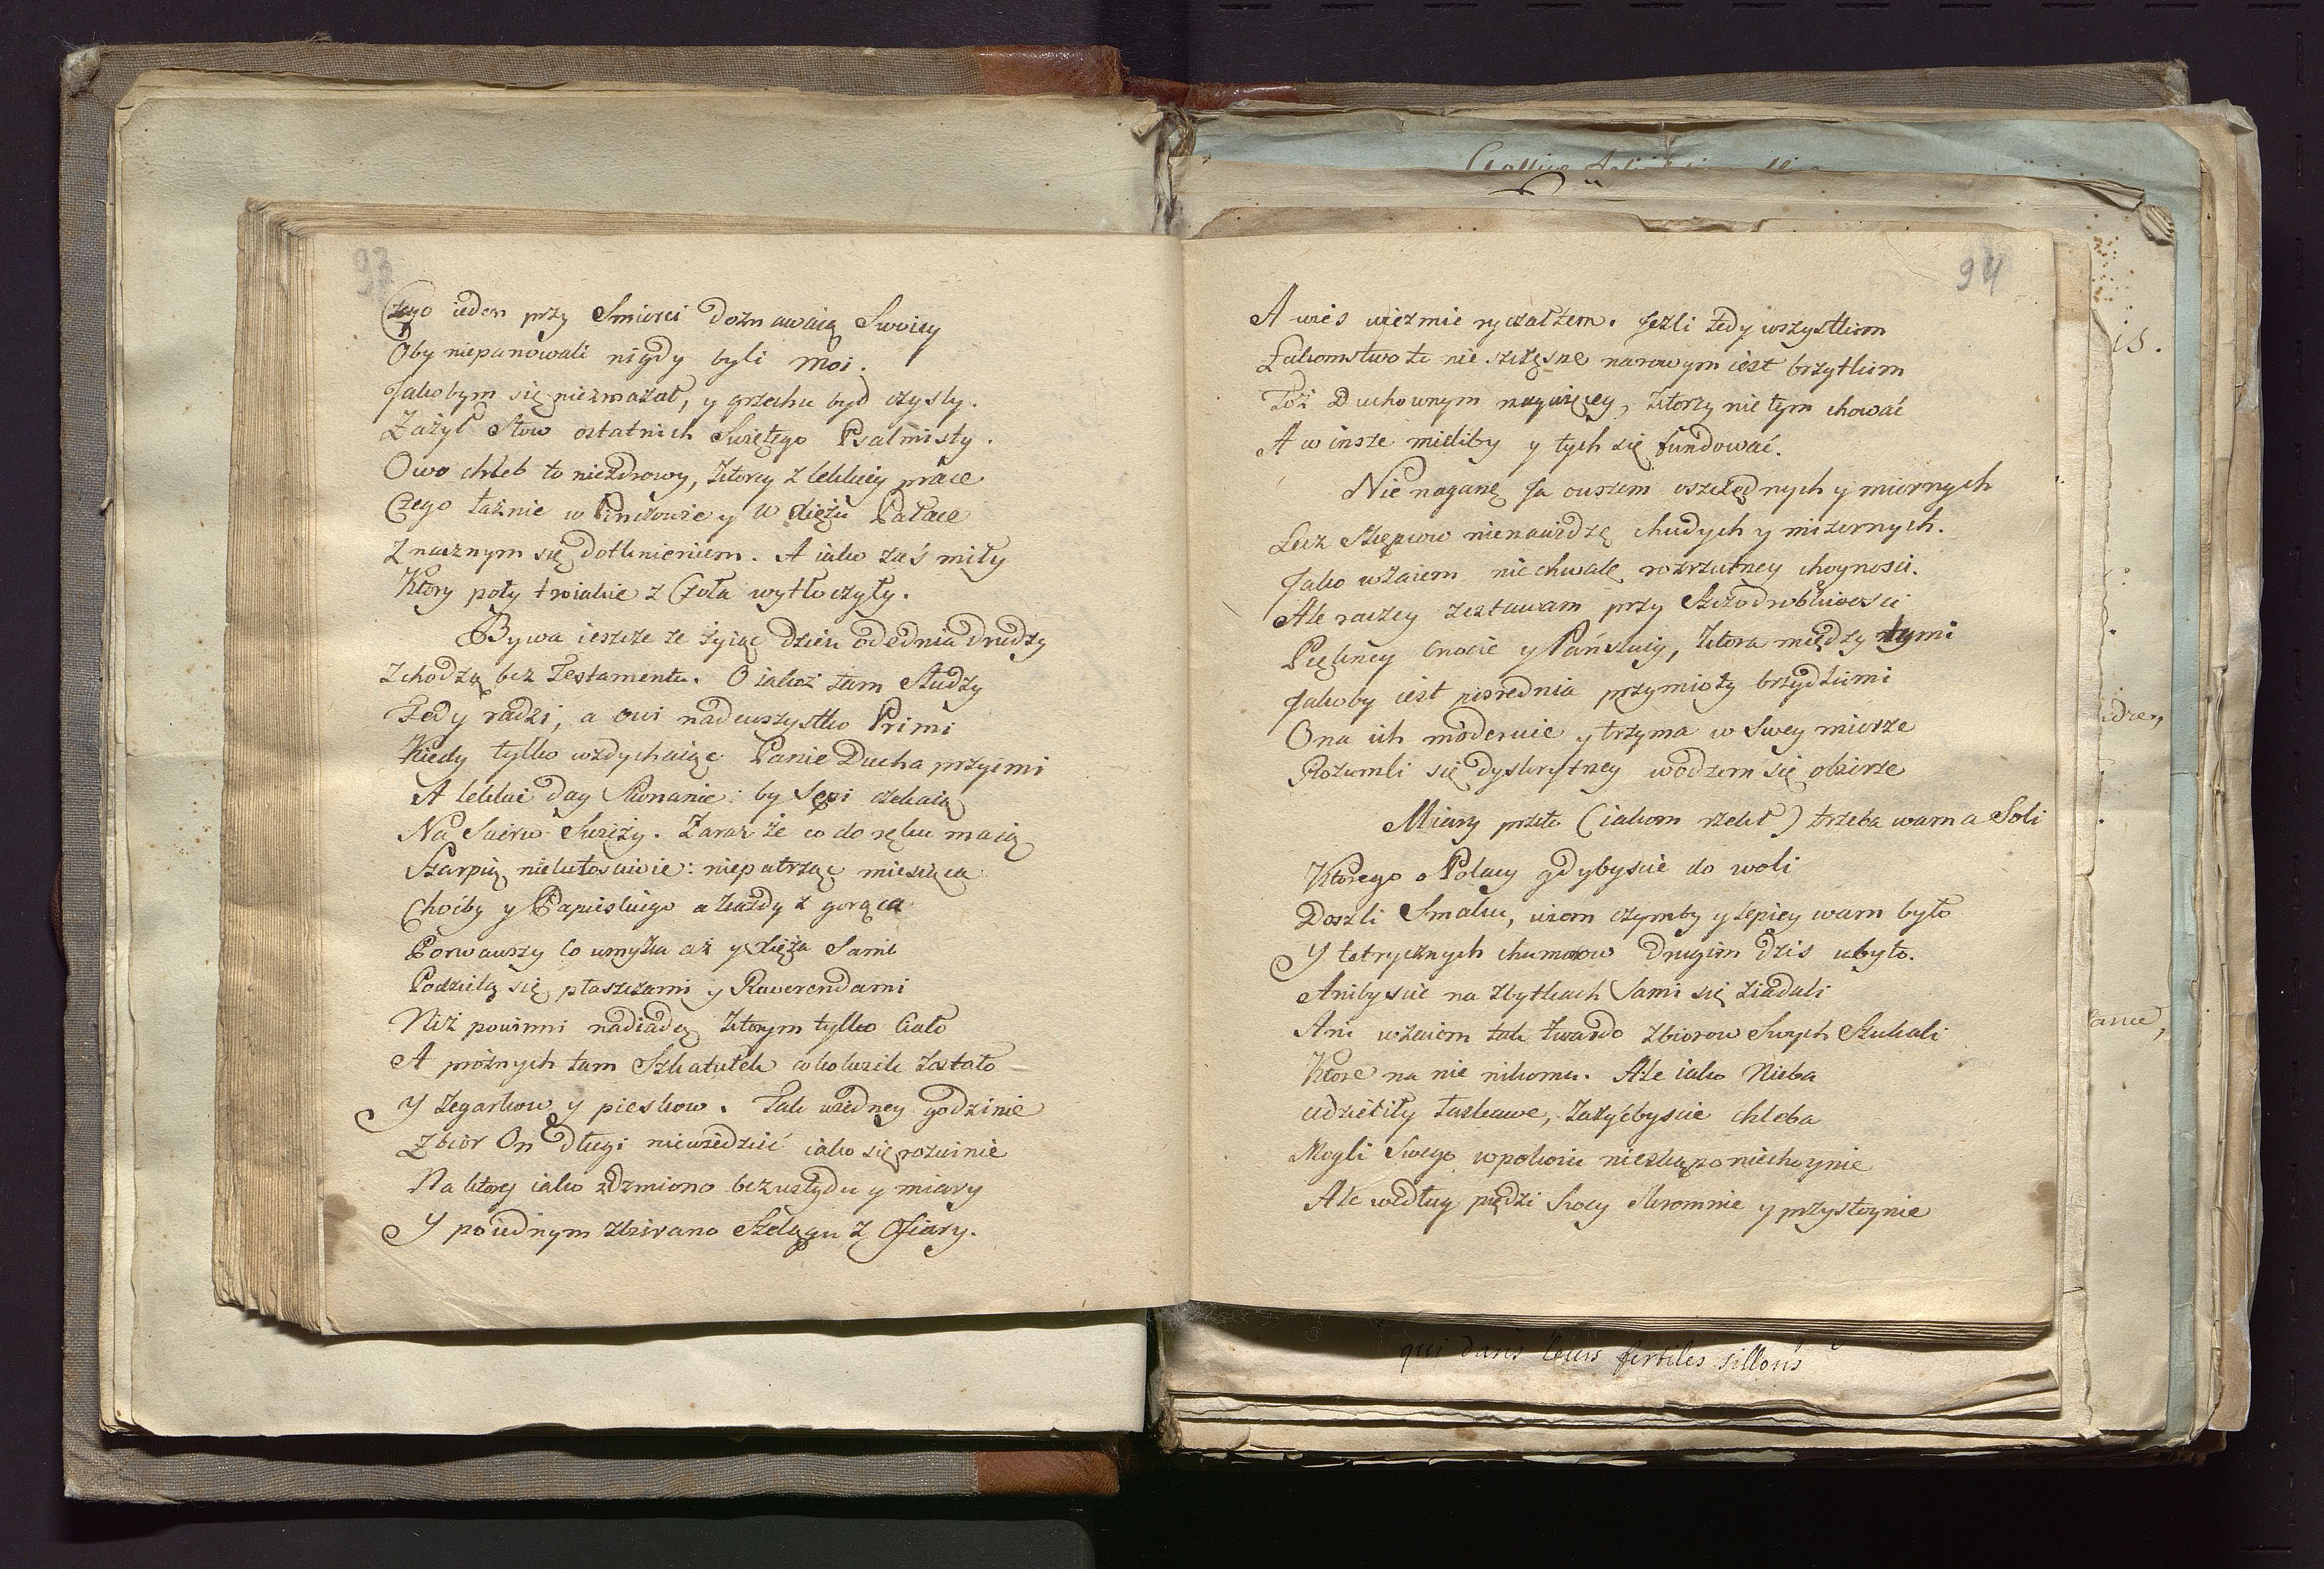 93
Czego ieden przy Smierci doznawaią Swoiey
Oby niepanowali nigdy byli moi.
Jakobym się niezmazał, y grzechu był czysty.
Zażył Słow ostatnich Swiętego Psalmisty.
Owo chleb to niezdrowy, ktorey z lekkiey prace
Czego łaźnie w Pinczowie y w Xiążu Pałace
Znacznym się dotknieniem. A iako zaś miły
Ktory poty trwiakie z Czoła wytłoczyły.
Bywa ieszcze że żyiąc dzień ode dnia drudzy
Zchodzą bez Testamentu. O iakoż tam Słudzy
Tedy radzi, a owi nadewszystko Primi
Kiedy tylko wzdychaiąc Panie Ducha przyimi
A lekkie day Skonanie: by Sępi czekaią
Na Scierw Swieży. Zaraz że co do ręku maią
Szarpią nielutosciwie: niepatrząc miesiąca
Choćby y Papieskiego a każdy z gorąca
Porwawszy co umyka aż y Xięża Sami
Podzielą się płaszczami y Rewerendami
Niż powinni nadiadą ktorym tylko Ciało
A prożnych tam Szkatułek cokolwiek zostało
Y Zegarkow y pieskow. Tak wiedney godzinie
Zbior On długi niewiedzieć iako się rozwinie
Na ktory iako zdzmiono bez wstydu y miary
Y poiednym zbirano Szelągu z Ofiary.
94
A wieś wiezmie ryczałtem. Jezli tedy wszystkim
Łakomstwo te nieszczęsne narowym iest brzytkim
Toż Duchownym naywięcey, ktorzy nie tym chować
A w insze mieliby y tych się fundować.
Nie naganę Ja owszem oszczędnych y miernych
Lecz Skępcow nienawidzę chudych y mizernych.
Jako wzaiem niechwalę rozrzutney choynosci.
Ale raczey zestawam przy Szczodrobliwosci
Piękney Cnocie y Pańskiey, ktora między tymi
Jakoby iest posrednia przymioty brzydkimi
Ona ich moderuie y trzyma w Swey mierze
Rozumli się dyskrytney wodzem się obierze
Miary przeto (iakom rzekł) trzeba wam a Soli
Ktorego o Polacy gdybyscie do woli
Doszli Smaku, wiem czymby y lepiey wam było
Y tetrycznych chumorow drugim dzis ubyło.
Anibyscie na zbytkach Sami się ziadali
Ani wzaiem tak twardo zbiorow Swych Szukali
Ktore na nic nikomu. Ale iako Nieba
udzieliły Łaskawe, zażyćbyscie chleba
Mogli Swego wpokoiu nieskąpo niechoynie
Ale według piędzi Swey Skromnie y przystoynie
qui dans leurs fertiles sillons
is.